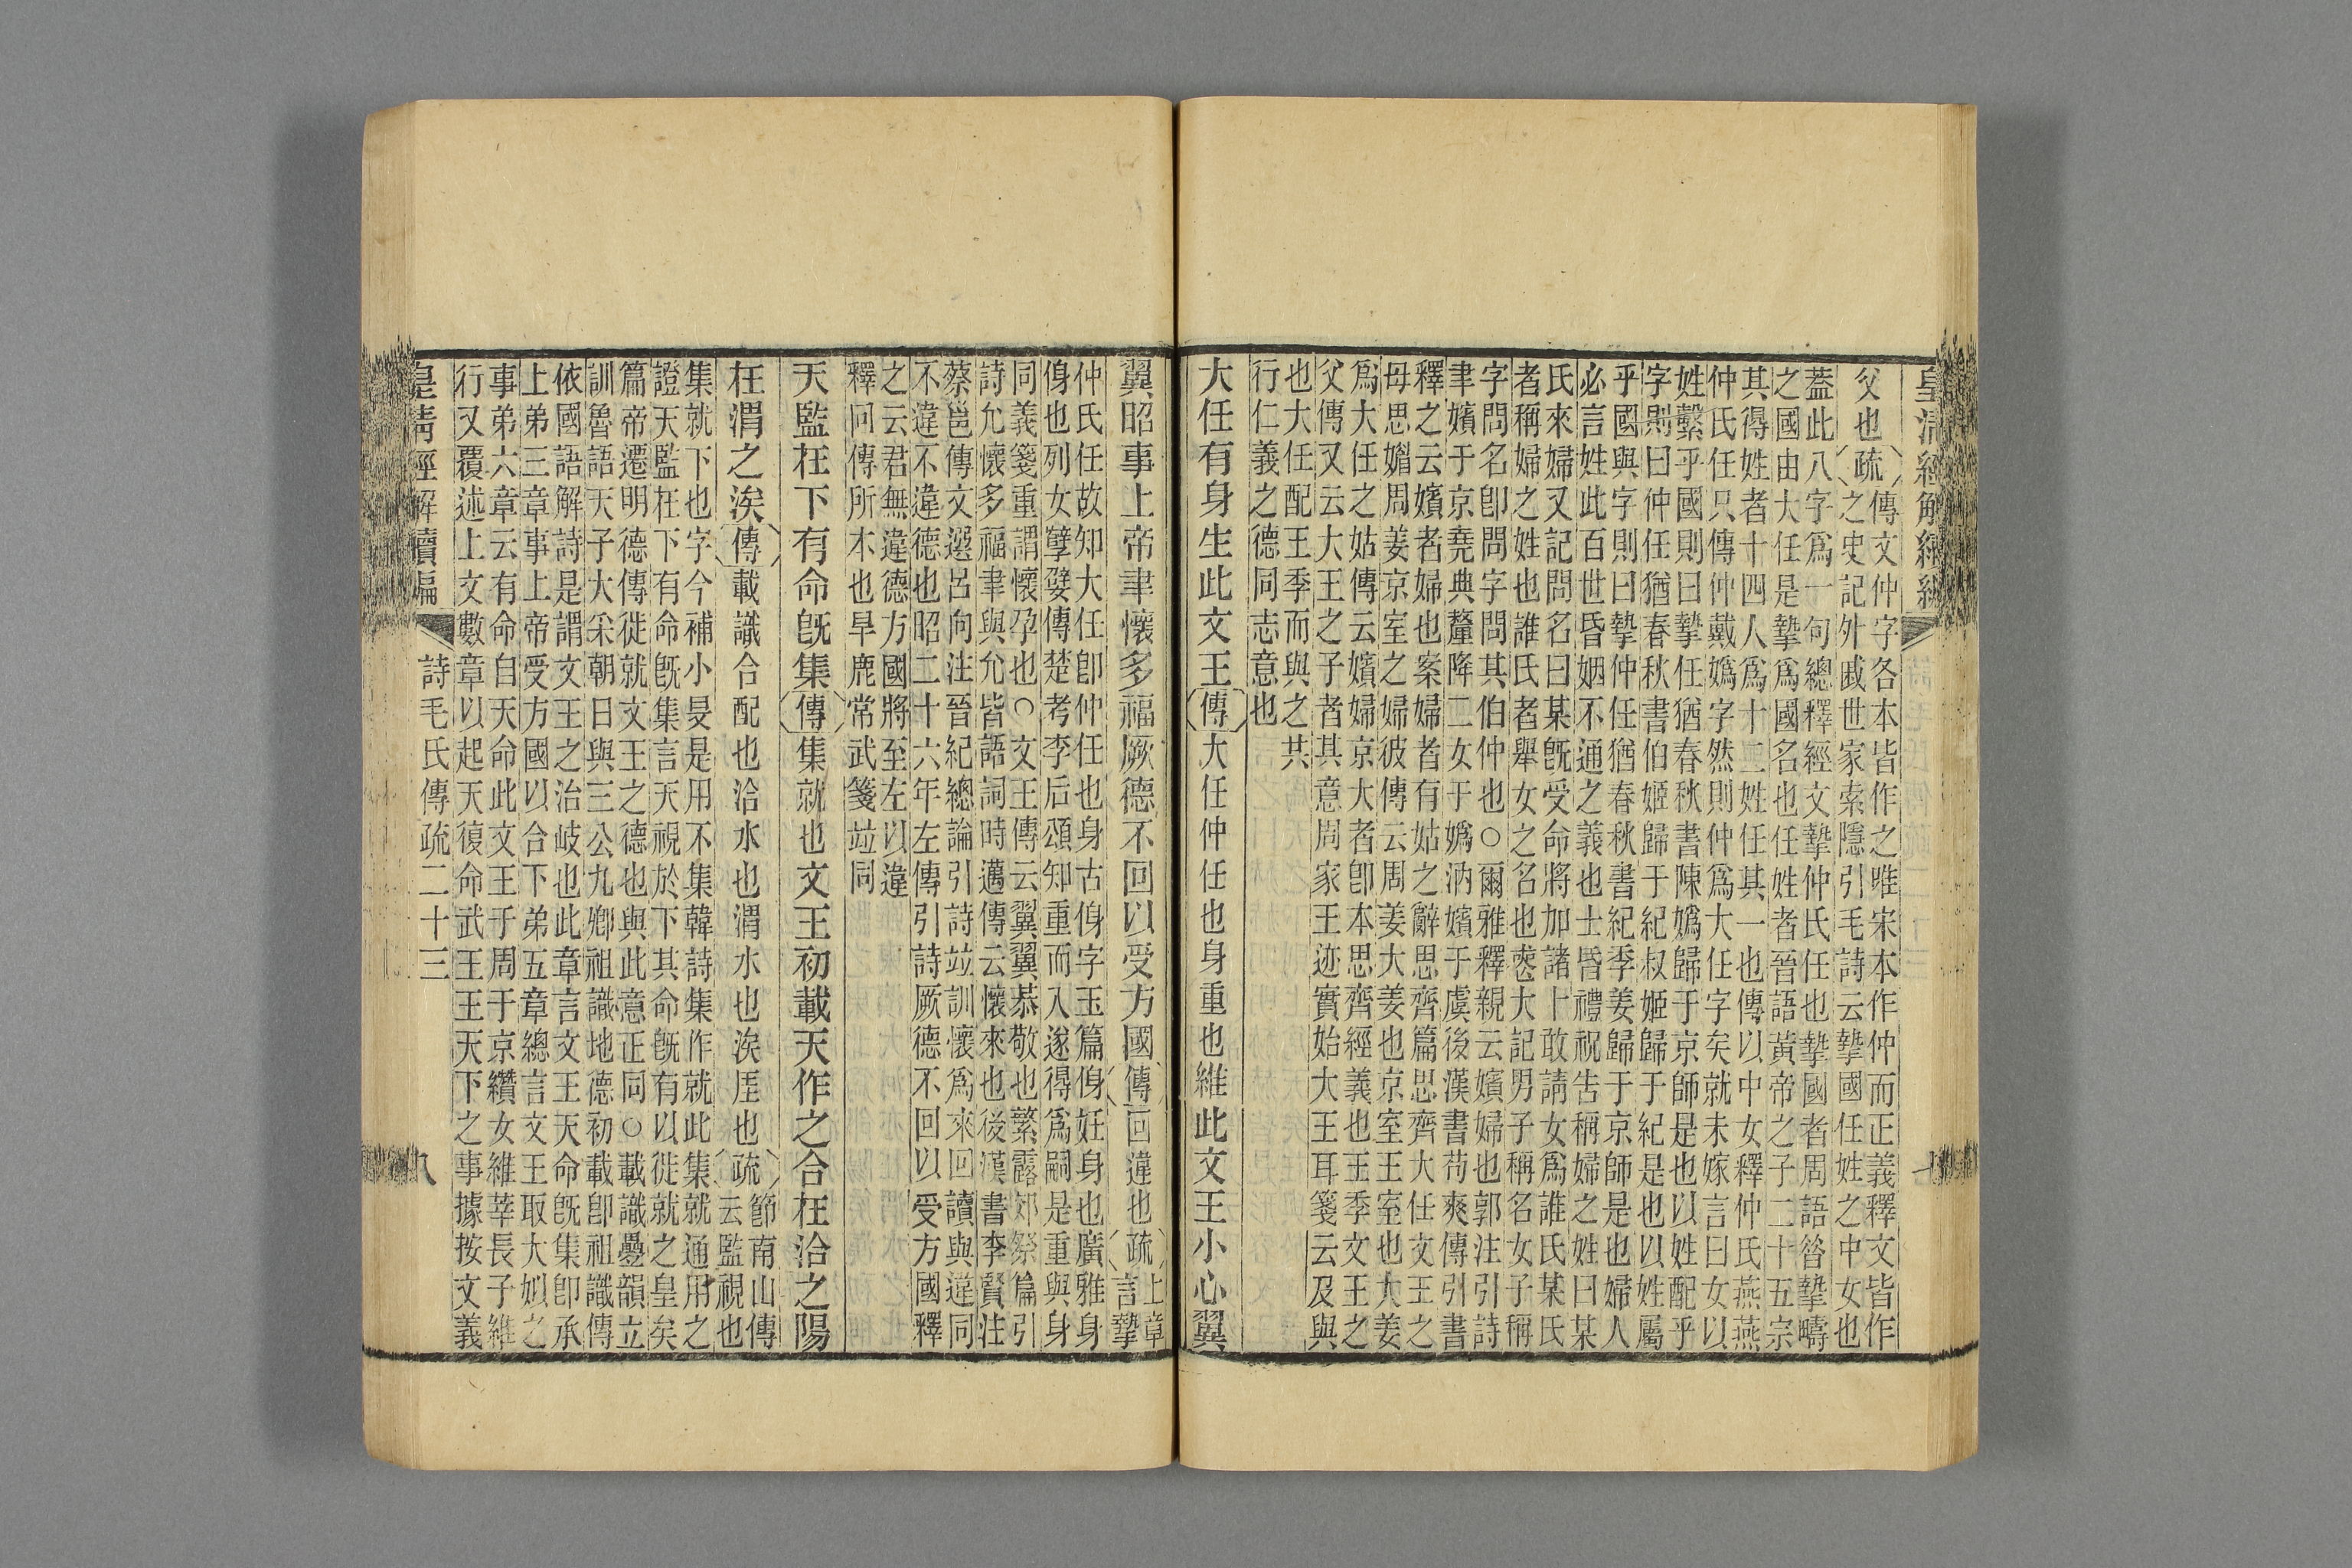 皇清經解續編
父也疏傳文仲字各本皆作之唯宋本作仲而正義釋文皆作
之史記外戚世家索隱引毛詩云摯國任姓之中女也
蓋此八字爲一句總釋經文摯仲氏任也摯國者周語昝摯疇
之國由大任是摯爲國名也任姓者晉語黃帝之子二十五宗
其得姓者十四人爲十二姓任其一也傳以中女釋仲氏燕燕
仲氏任只傳仲戴嬀字然則仲爲大任字矣就未嫁言曰女以
姓繫乎國則曰摯任猶春秋書陳嬀歸于京師是也以姓配乎
字則曰仲任猶春秋書伯姬歸于紀叔姬歸于紀是也以姓屬
乎國與字則曰摯仲任猶春秋書紀季姜歸于京師是也婦人
必言姓此百世昏姻不通之義也士昏禮祝告稱婦之姓曰某
氏來婦又記問名曰某旣受命將加諸卜敢請女爲誰氏某氏
者稱婦之姓也誰氏者舉女之名也䘮大記男子稱名女子稱
字問名卽問字問其伯仲也○爾雅釋親云嬪婦也郭注引詩
聿嬪于京堯典釐降二女于嬀汭嬪于虞後漢書荀爽傳引書
釋之云嬪者婦也案婦者有姑之辭思齊篇思齊大任文王之
母思媚周姜京室之婦彼傳云周姜大姜也京室王室也大姜
爲大任之姑傳云嬪婦京大者卽本思齊經義也王季文王之
父傳又云大王之子者其意周家王迹實始大王耳箋云及與
也大任配王季而與之共
行仁義之德同志意也
大任有身生此文王傳大任仲任也身重也維此文王小心翼
翼昭事上帝聿懷多福厥德不回以受方國傳回違也疏上章
言摯
仲氏任故知大任卽仲任也身古㑗字玉篇㑗妊身也廣雅身
㑗也列女孽嬖傳楚考李后頌知重而入遂得爲嗣是重與身
同義箋重謂懷孕也○文王傳云翼翼恭敬也繁露郊祭篇引
詩允懷多福聿與允皆語詞時邁傳云懷來也後漢書李賢注
蔡邕傳文選呂向注晉紀總論引詩竝訓懷爲來回讀與違同
不違不違德也昭二十六年左傳引詩厥德不回以受方國釋
之云君無違德方國將至左以違
釋回傳所本也旱鹿常武箋竝同
天監在下有命旣集傳集就也文王初載天作之合在洽之陽
在渭之涘傳載識合配也洽水也渭水也涘厓也疏節南山傳
云監視也
集就下也字今補小旻是用不集韓詩集作就此集就通用之
證天監在下有命旣集言天視於下其命旣有以徙就之皇矣
篇帝遷明德傳徙就文王之德也與此意正同○載識疊韻立
訓魯語天子大采朝日與三公九卿祖識地德初載卽祖識傳
依國語解詩是謂文王之治岐也此章言文王天命旣集卽承
上弟三章事上帝受方國以合下弟五章總言文王取大姒之
事弟六章云有命自天命此文王于周于京纘女維莘長子維
行又覆述上文數章以起天復命武王王天下之事據按文義
皇清經解續編 詩毛氏傳疏二十三 八